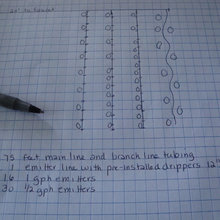 75 feet main line and branch line tubing
1 emitter line with pre-installed drippers 12"
16 1 gph emitters
30 1/2 gph emitters